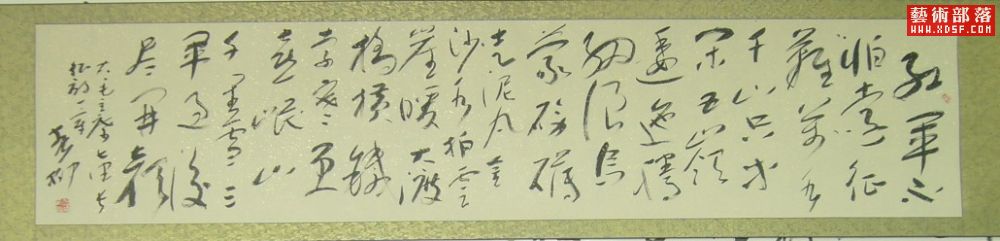 藝術部落
www.XDSF.com
红军不
怕远征
難萬水
千山只等
闲五嶺
逶迤騰
细浪烏
蒙磅礴
走泥丸金
沙水拍雲
崖暖大渡
橋横鐵
索寒更
喜岷山
千里雪三
军過後
尽開颜
毛主席七律长
征